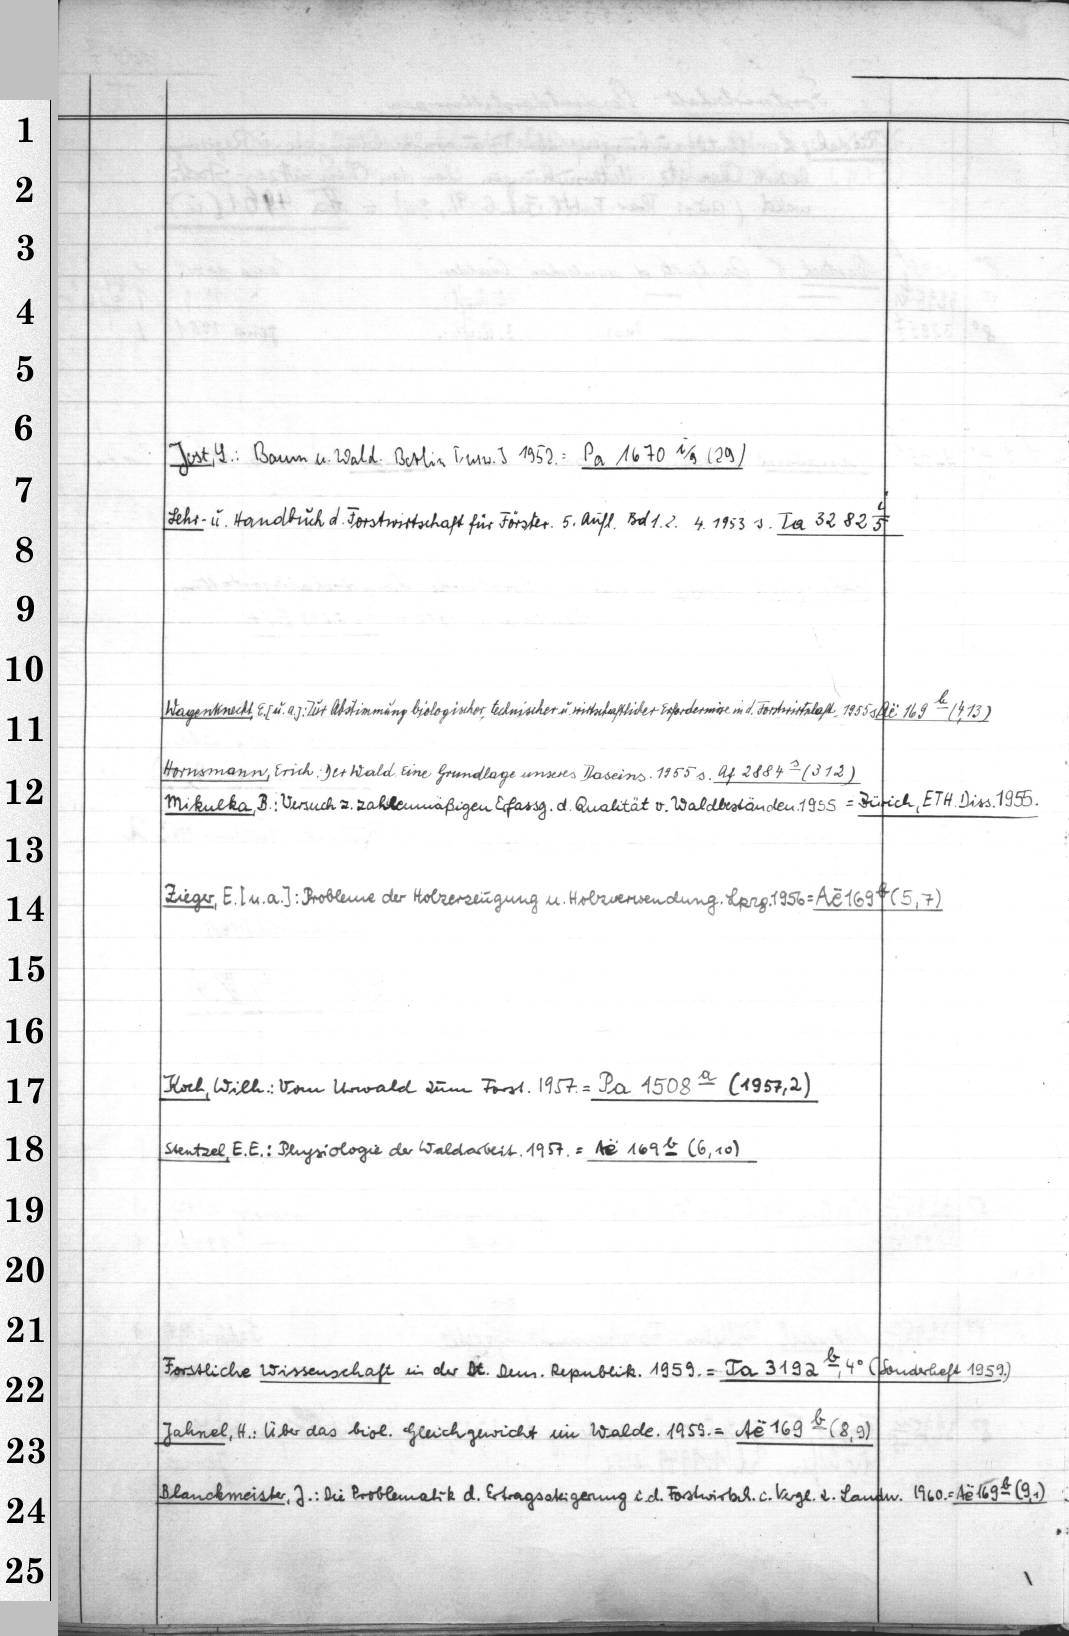 1
2
3
4
5
6
Jost, L.: Baum u. Wald. Berlin [usw.] 1952. = Pa 1670 i/9 (29)
7
Lehr- u. Handbuch d. Forstwirtschaft für Förster. 5. Aufl. Bd 1. 2. 4. 1953 s. Ta 3282 i/5
8
9
10
Wagenknecht, E. [u. a.]: Zur Abstimmung biologischer, technischer u. wirtschaftlicher Erfordernisse in d. Forstwirtschaft. 1955 s. Aë 169 b (4,13)
11
Hornsmann, Erich: Der Wald. Eine Grundlage unseres Daseins. 1955 s. Af 2884 s (312)
12
Mikulka, B.: Versuch z. zahlenmäßigen Erfassg. d. Qualität v. Waldbeständen. 1955 = Zürich, ETH. Diss. 1955.
13
14
Zieger, E. [u. a.]: Probleme der Holzerzeugung u. Holzverwendung. Lpzg. 1956 = Aë 169 b (5,7)
15
16
17
Koch, Wilh.: Vom Urwald zum Forst. 1957. = Pa 1508 a (1957,2)
18
Stentzel, E.E.: Physiologie der Waldarbeit. 1957. = Aë 169 b (6,10)
19
20
21
22
Forstliche Wissenschaft in der Dt. Dem. Republik. 1959. = Ta 3192 b, 4° (Sonderheft 1959.)
23
Jahnel, H.: Über das biol. Gleichgewicht im Walde. 1959. = Aë 169 b (8,9)
24
Blanckmeister, J.: Die Problematik d. Ertragssteigerung i. d. Forstwirtsch. i. Vergl. z. Landw. 1960. = Aë 169 b (9,1)
25